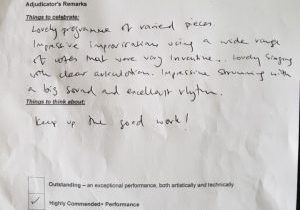 Adjudicator's Remarks
Things to celebrate:
Lovely programme of varied pieces.
Impressive improvisations using a wide range
of notes that were very inventive. Lovely singing
with clear articulation. Impressive strumming with
a big sound and excellent rhythm.
Things to think about:
Keep up the good work!
Outstanding – an exceptional performance, both artistically and technically
Highly Commended+ Performance